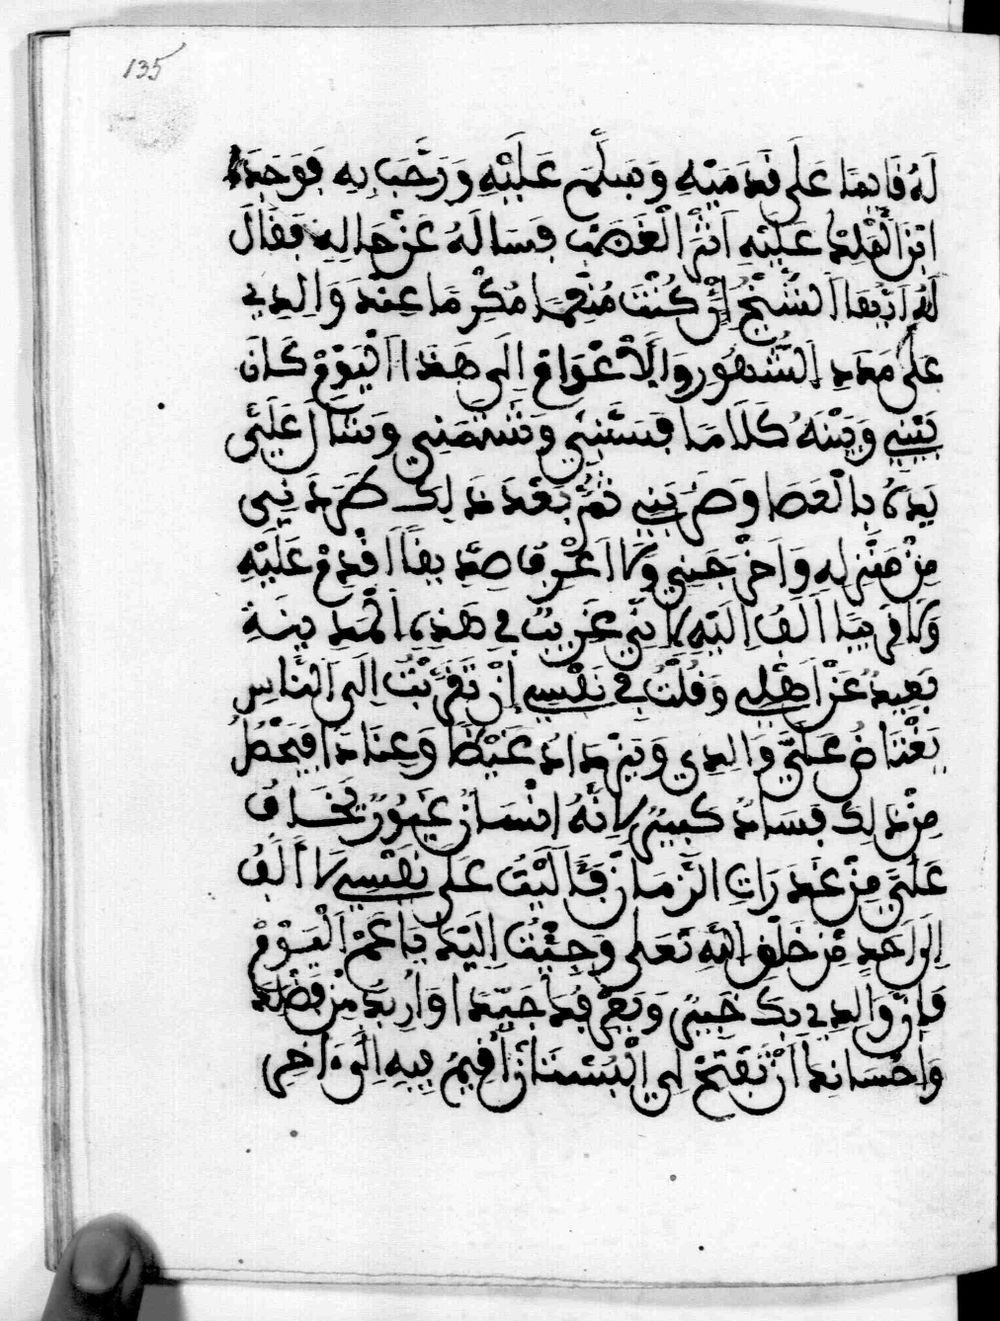 135
لَهُ قَايِمًا عَلَى قَدَمَيْهِ وَسَلَّمَ عَلَيْهِ وَرَحَّبَ بِهِ فَوَجَدَهُ
ابْنَ الْمَلِكِ عَلَيْهِ اَثَرُ الْغَضَبِ فَسَالَهُ عَنْ حَالِهِ فَقَالَ
لَهُ اَيُّهَا الشَّيْخُ إِنِّي كُنْتُ مُنَعَّمًا مُكْرَمًا عِنْدَ وَالِدِي
عَلَى مَدَدِ الشُّهُورِ وَالْأَعْوَامِ اِلَى هَذَا الْيَوْمِ كَانَ
بَيْنِي وَبَيْنَهُ كَلَامًا فَسَبَّنِي وَشَتَمَنِي وَشَالَ عَلَيَّ
يَدَهُ بِالْعَصَا وَضَرَبَنِي ثُمَّ بَعْدَ ذَلِكَ طَرَدَنِي
مِنْ مَنْزِلِهِ وَاَخْرَجَنِي وَلَا اَعْرِفُ صَدِيقًا اَقْدِمُ عَلَيْهِ
وَلَا قَرِيبًا اَلَفُ اِلَيْهِ لِاَنِّي غَرِيبٌ فِي هَذِهِ الْمَدِينَةِ
بَعِيدٌ عَنْ اَهْلِي وَقُلْتُ فِي نَفْسِي إِنْ تَقَرَّبْتُ اِلَى النَّاسِ
يَغْتَاضُ عَلَيَّ وَالِدِي وَيَزْدَادُ غَيْظًا وَعِنَادًا فَيَحْصُلُ
مِنْ ذَلِكَ فَسَادٌ كَبِيرٌ لِاَنَّهُ اِنْسَانٌ غَيُورٌ يَخَافُ
عَلَيَّ مِنْ غَدَرَاتِ الزَّمَانِ فَآلَيْتُ عَلَى نَفْسِي لَا اَلَفُ
اِلَى اَحَدٍ مِّنْ خَلْقِ اللّٰهِ تَعَلَى وَجِئْتُ اِلَيْكَ يَا عَمْ اَلْيَوْمَ
فَاِنَّ وَالِدِي بِكَ خَبِيرٌ وَيَعْرِفُكَ جَيِّدًا وَاُرِيدُ مِنْ فَضْلِكَ
وَاِحْسَانِكَ اَنْ تَفْتَحَ لِي الْبُسْتَانَ اُقِيمُ فِيهِ اِلَى ءَاخِرِ